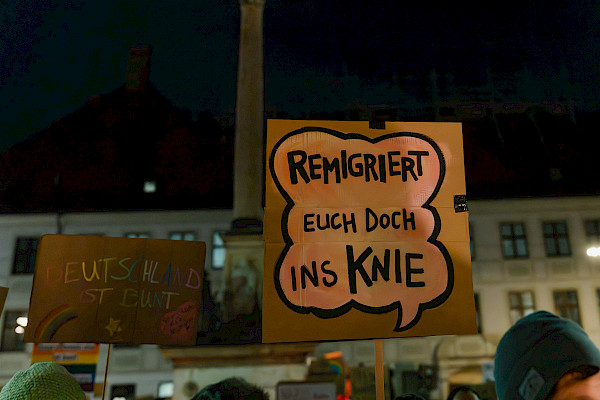 REMIGRIERT
EUCH DOCH
INS KNIE
DEUTSCHLAND
IST BUNT